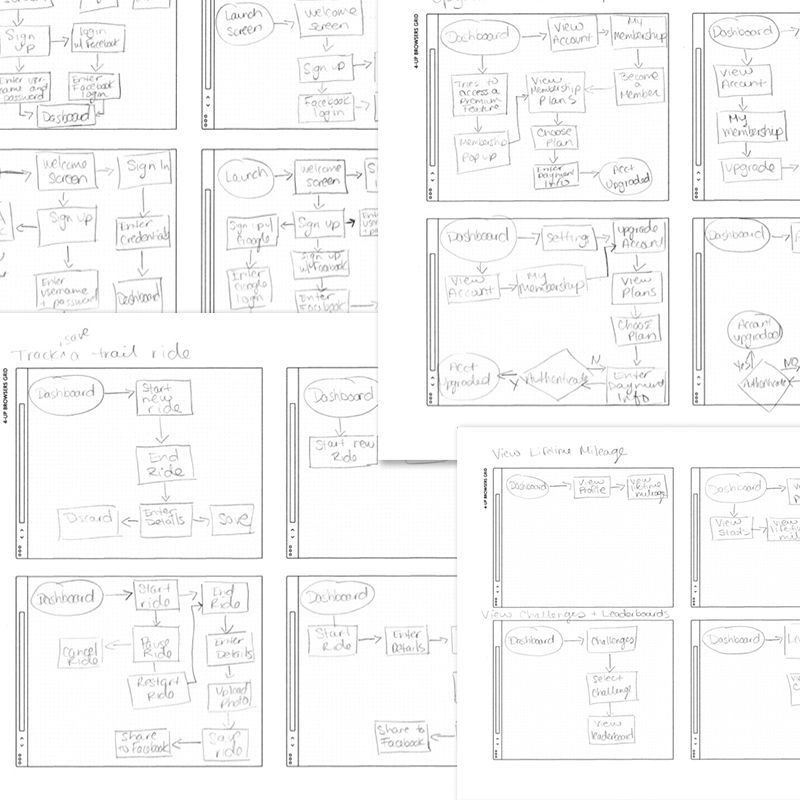 Sign
up
login
w/Facebook
Enter user
name and
password
Enter
Facebook
login
Dashboard
Launch
Screen
Welcome
Screen
Sign up
Facebook
login
Welcome
Screen
Sign In
Sign up
Enter
Credentials
Enter
username
+ password
Dashboard
Launch
Welcome
Screen
Sign up w/
Google
Sign up
Enter
Google
login
Sign up
w/Facebook
Enter
Facebook
4-UP BROWSERS GRID
Dashboard
View
Account
My
Membership
Tries to
access a
Premium
Feature
View
Membership
Plans
Become
a
Member
Membership
Pop up
Choose
Plan
Enter
Payment
Info
Acct
Upgraded
Dashboard
View
Account
My
Membership
Upgrade
Dashboard
Settings
Upgrade
Account
View
Account
My
Membership
View
Plans
Choose
Plan
Acct
Upgraded
Y
Authenticate
N
Enter
Payment
Info
Dashboard
Account
upgraded
Yes
NO
Authenticate
save
Track a trail ride
4-UP BROWSERS GRID
Dashboard
Start
new
ride
End
Ride
Discard
Enter
Details
Save
Dashboard
Start new
Ride
Dashboard
Start
ride
End
Ride
Cancel
Ride
Pause
Ride
Enter
Details
Restart
Ride
Upload
Photo
Share
to Facebook
Save
ride
Dashboard
Start
Ride
Enter
Details
Share to
Facebook
View Lifetime Mileage
4-UP BROWSERS GRID
Dashboard
View
Profile
View
lifetime
mileage
Dashboard
View
Stats
View Challenges + Leaderboards
Dashboard
Challenges
Select
Challenge
View
leaderboard
Dashboard